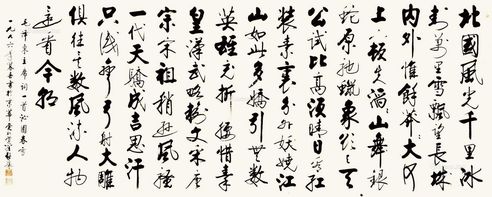 北國風光千里冰
封萬里雪飄望長城
内外惟餘莽々大河
上下頓失滔々山舞銀
蛇原馳蠟象欲與天
公試比高須晴日看紅
裝素裹分外妖嬈江
山如此多嬌引无數
英雄竞折腰惜秦
皇漢武略輸文采唐
宗宋祖稍遜風騷
一代天驕成吉思汗
只識彎弓射大雕
俱往矣數風流人物
還看今朝
毛澤東主席詞一首沁園春雪
一九八六年書於京華